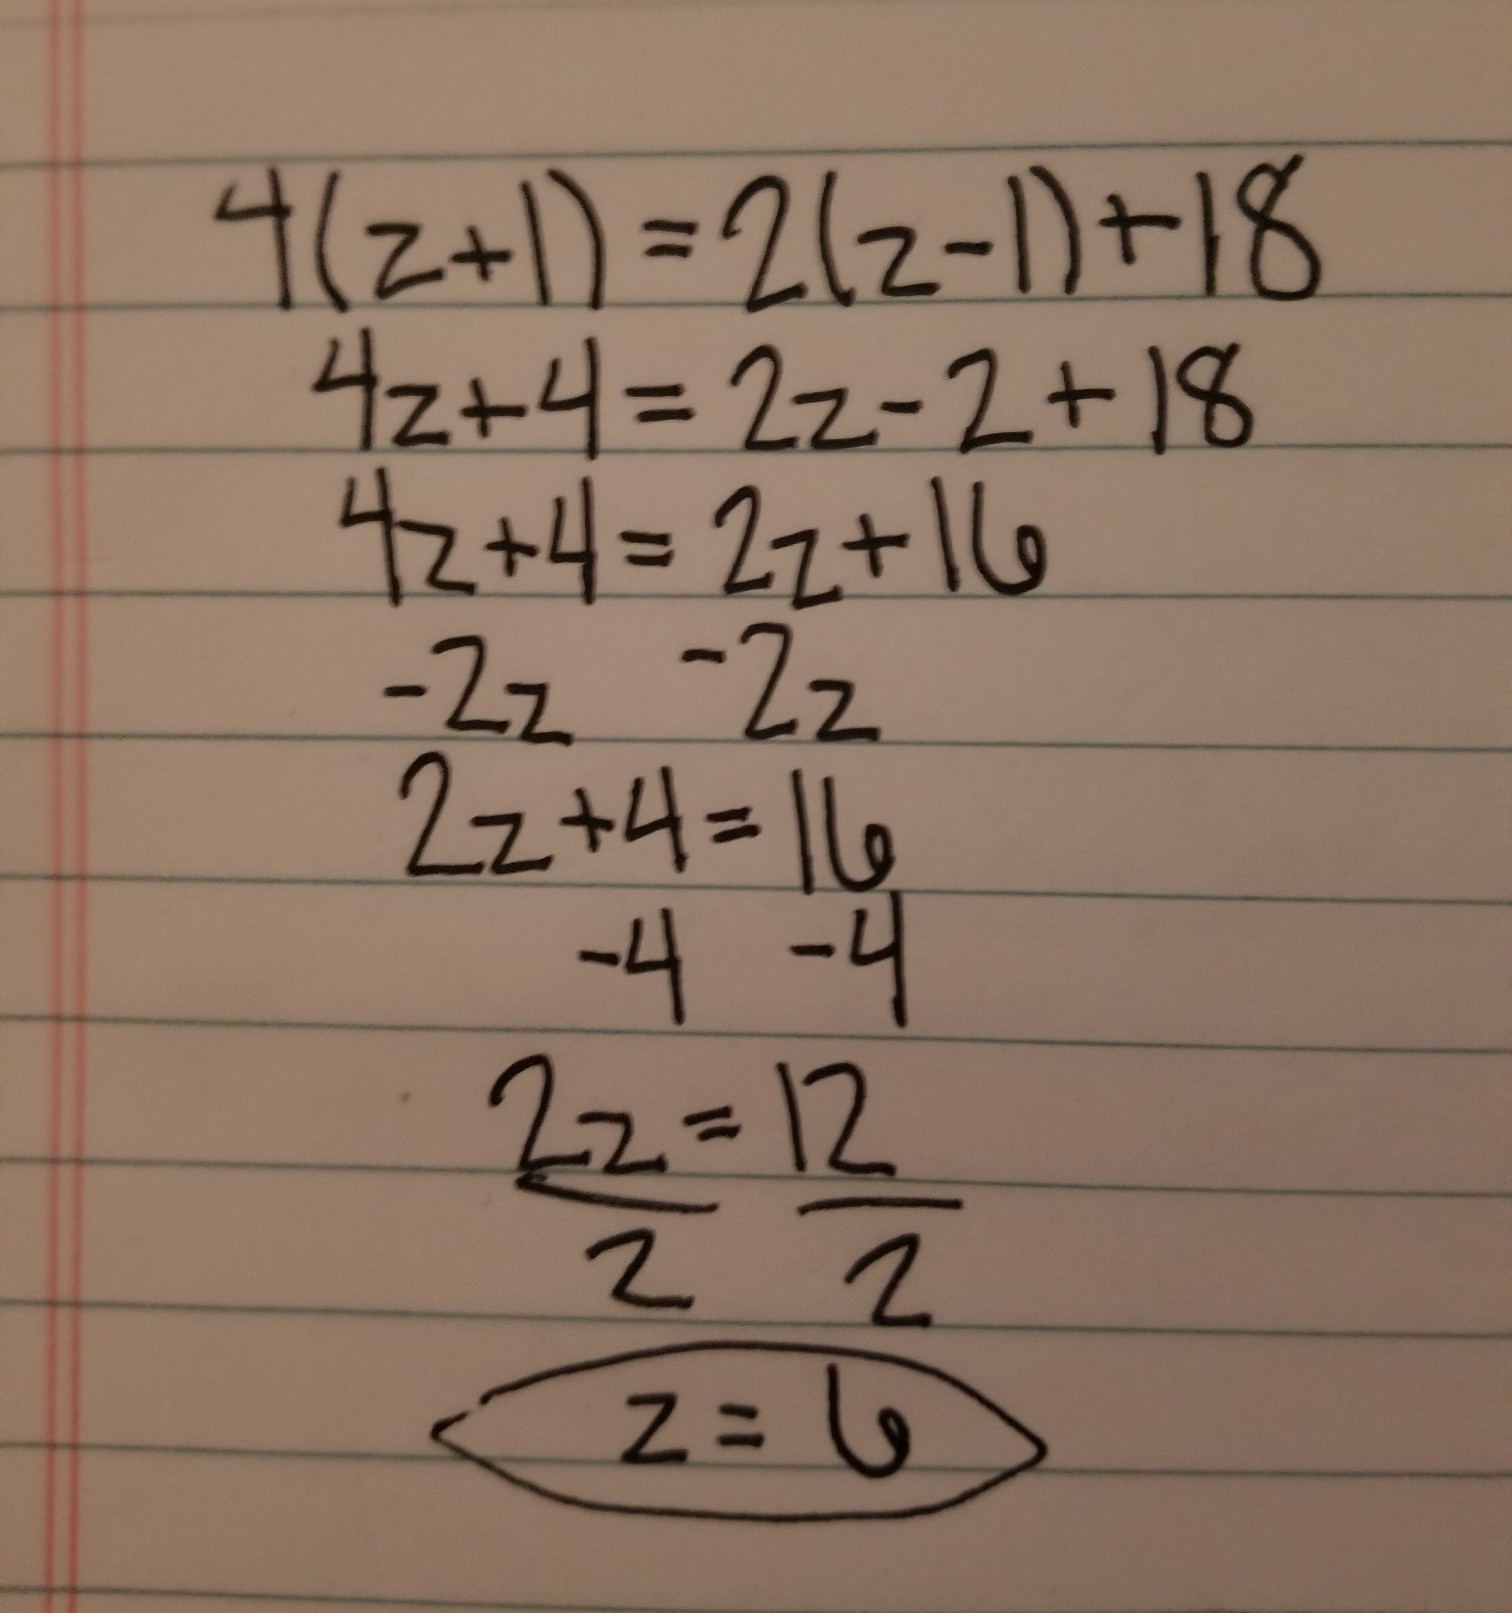 4(z+1)=2(z-1)+18
4z+4=2z-2+18
4z+4=2z+16
-2z -2z
2z+4=16
-4 -4
2z=12
2 2
z=6